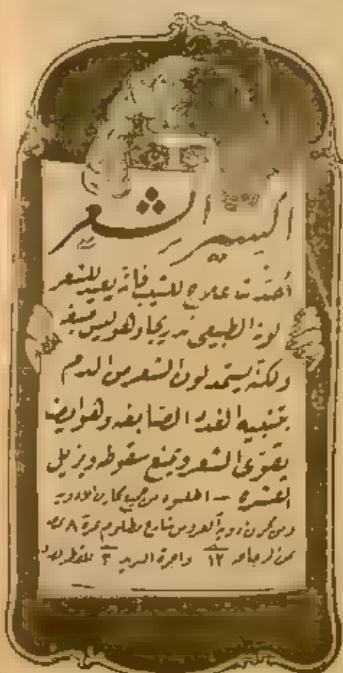 اكسير الشعر
أحدث علاج للشيب فانه يعيد للشعر
لونه الطبيعى تدريجيا وهو ليس صبغه
ولكنه يستمد لون الشعر من الدم
بتنبيه الغدد الصابغه وهو ايضا
يقوى الشعر ويمنع سقوطه ويزيل
القشره - اطلبوه من جميع مخازن الادويه
ومن مخزن ادوية العروس شارع مظلوم نمرة ٨ بمصر
ثمن الزجاجه ١٢ واجرة البريد ٣ للقطر